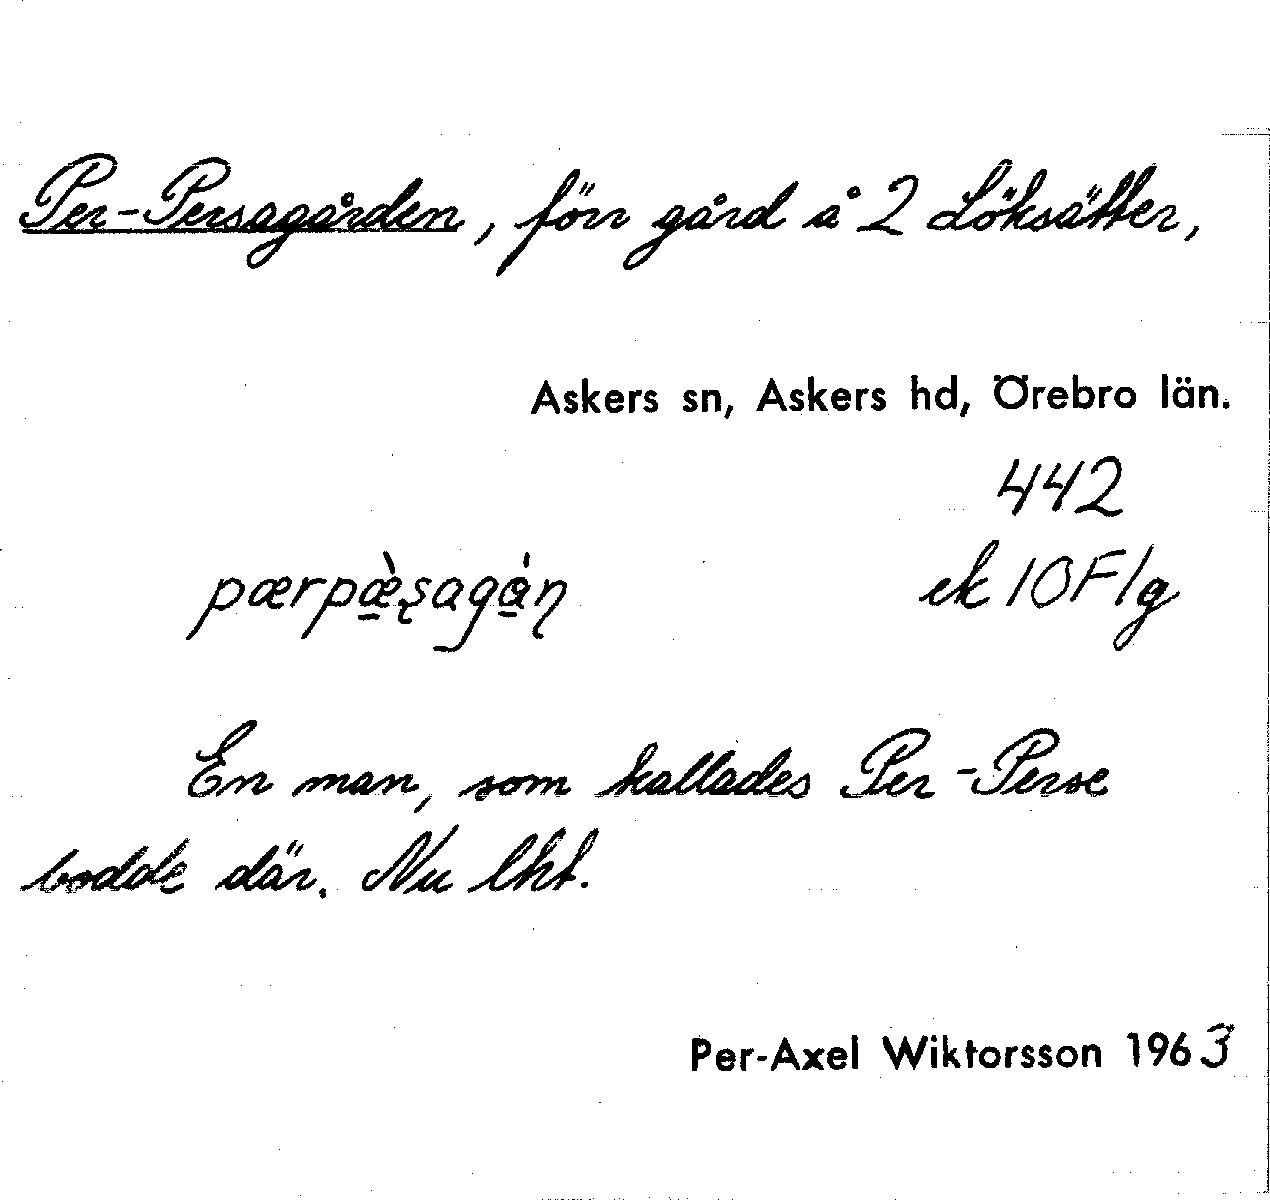 Per-Persagården, förr gård å 2 Löksätter,
Askers sn, Askers hd, Örebro län.
442
pærpæ̀ʂagáɳ ek 10F1g
En man, som kallades Per-Perse
bodde där. Nu lht.
Per-Axel Wiktorsson 1963